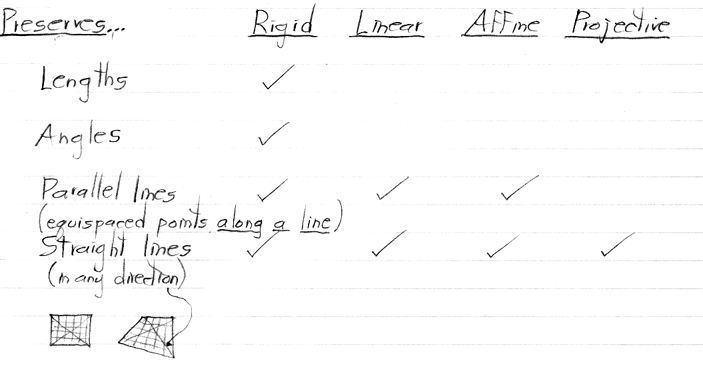 Preserves... Rigid Linear Affine Projective
Lengths ✓
Angles ✓
Parallel lines ✓ ✓ ✓
(equispaced points along a line)
Straight lines ✓ ✓ ✓ ✓
(in any direction)